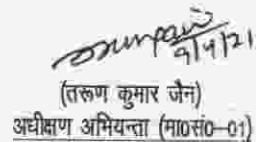 9/4/21
(तरूण कुमार जैन)
अधीक्षण अभियन्ता (मा०सं०-01)